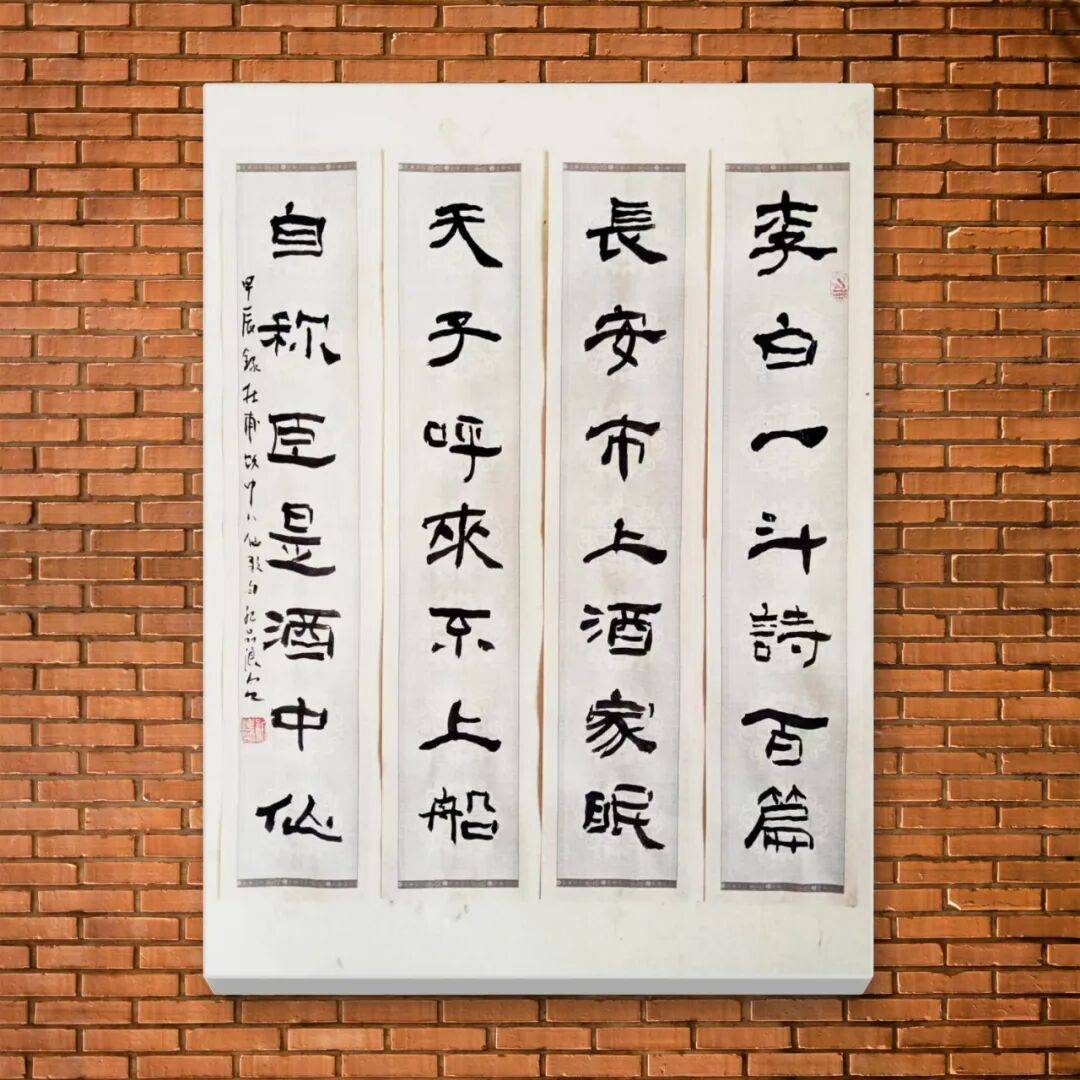 李白一斗詩百篇
長安市上酒家眠
天子呼來不上船
自称臣是酒中仙
甲辰錄杜甫飲中八仙歌句